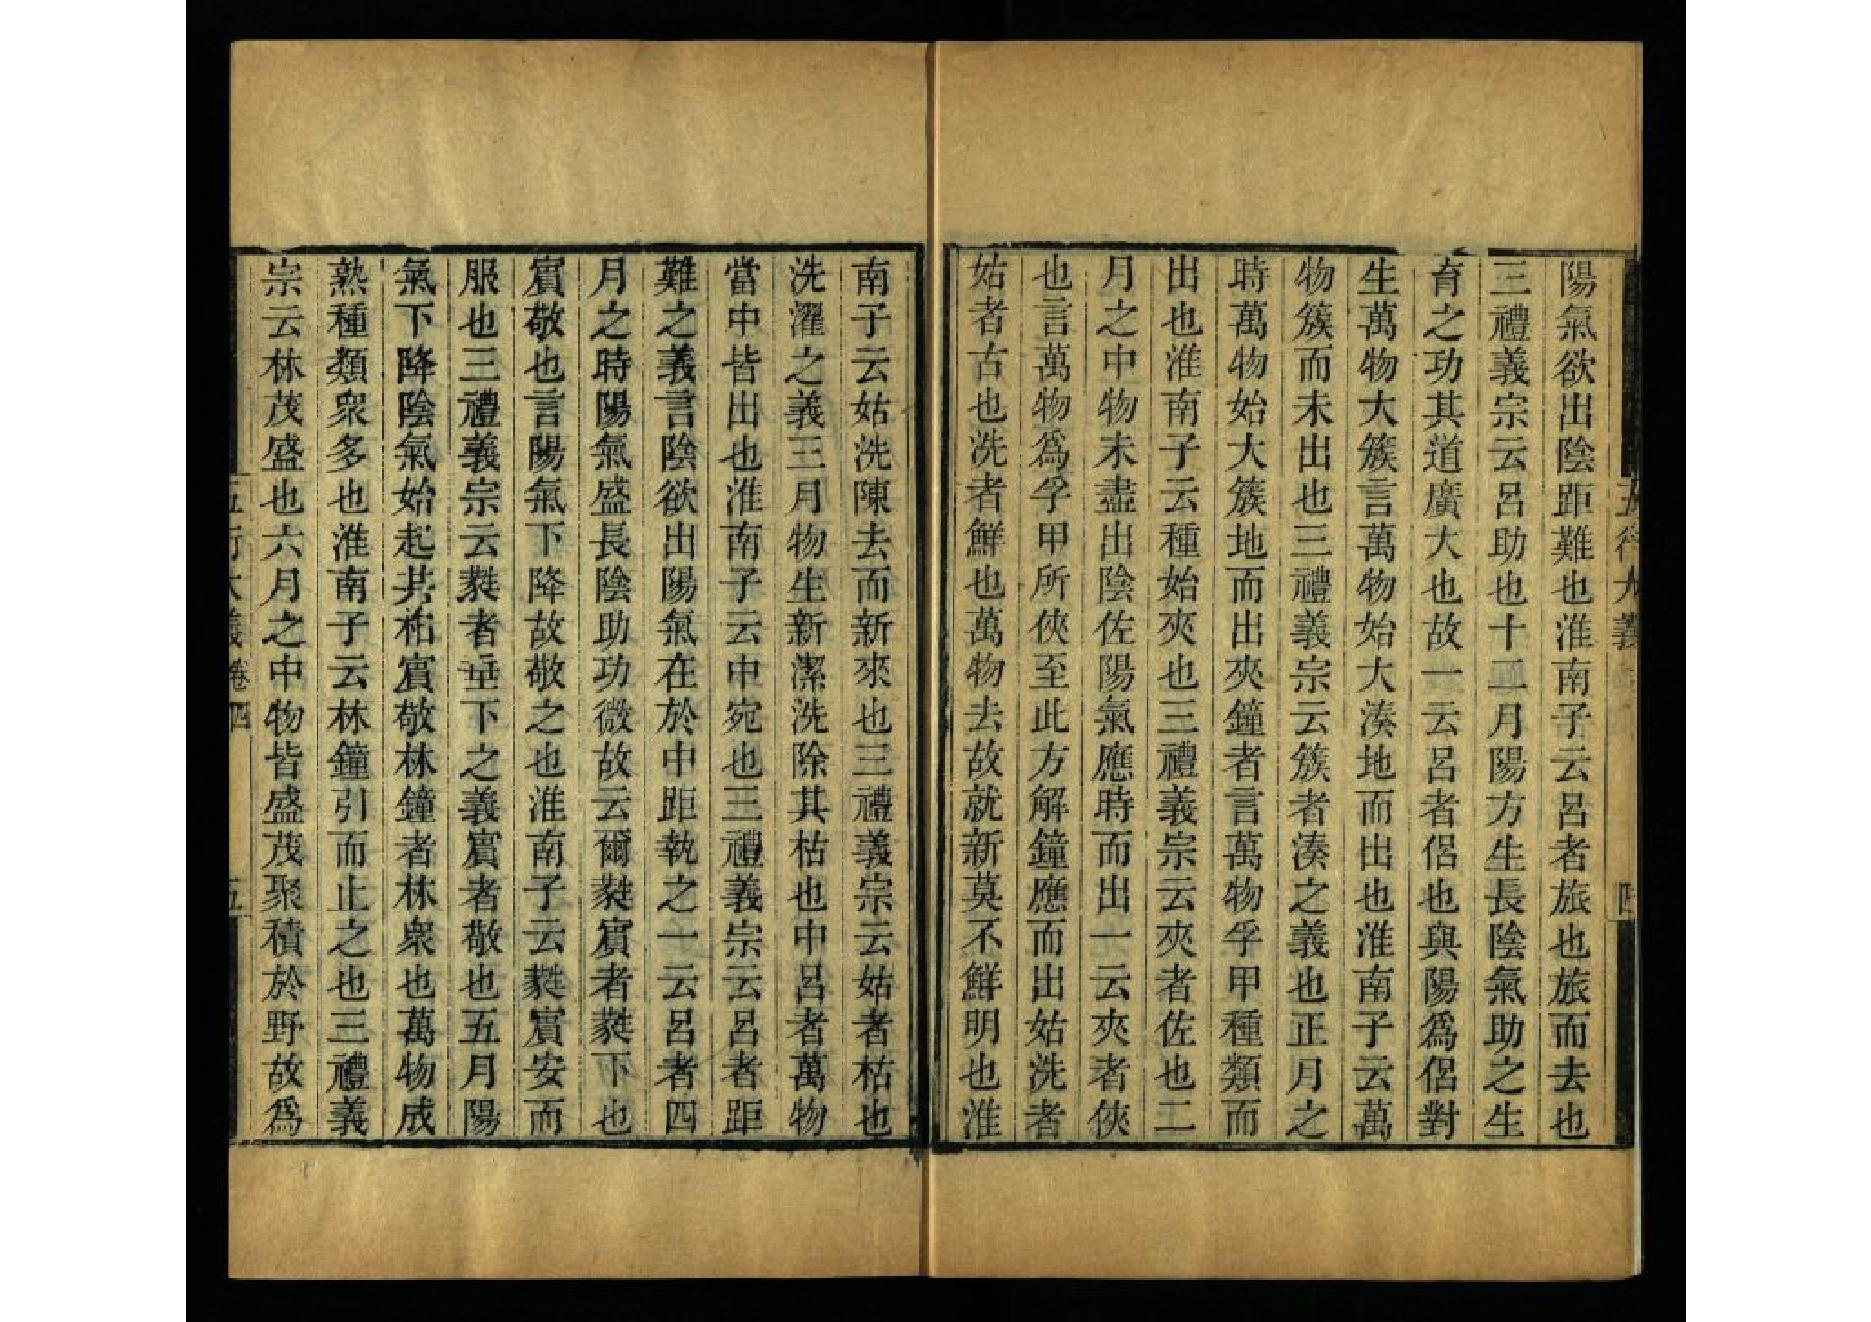 陽氣欲出陰距難也淮南子云呂者旅也旅而去也
三禮義宗云呂助也十二月陽方生長陰氣助之生
育之功其道廣大也故一云呂者侶也與陽爲侶對
生萬物大簇言萬物始大湊地而出也淮南子云萬
物簇而未出也三禮義宗云簇者湊之義也正月之
時萬物始大簇地而出夾鐘者言萬物孚甲種類而
出也淮南子云種始夾也三禮義宗云夾者佐也二
月之中物未盡出陰佐陽氣應時而出一云夾者俠
也言萬物爲孚甲所俠至此方解鐘應而出姑洗者
姑者古也洗者鮮也萬物去故就新莫不鮮明也淮
南子云姑洗陳去而新來也三禮義宗云姑者枯也
洗濯之義三月物生新潔洗除其枯也中呂者萬物
當中皆出也淮南子云中宛也三禮義宗云呂者距
難之義言陰欲出陽氣在於中距執之一云呂者四
月之時陽氣盛長陰助功微故云爾蕤賓者蕤下也
賓敬也言陽氣下降故敬之也淮南子云蕤賓安而
服也三禮義宗云蕤者垂下之義賓者敬也五月陽
氣下降陰氣始起共相賓敬林鐘者林衆也萬物成
熟種類衆多也淮南子云林鐘引而止之也三禮義
宗云林茂盛也六月之中物皆盛茂聚積於野故爲
五行大義卷四
五